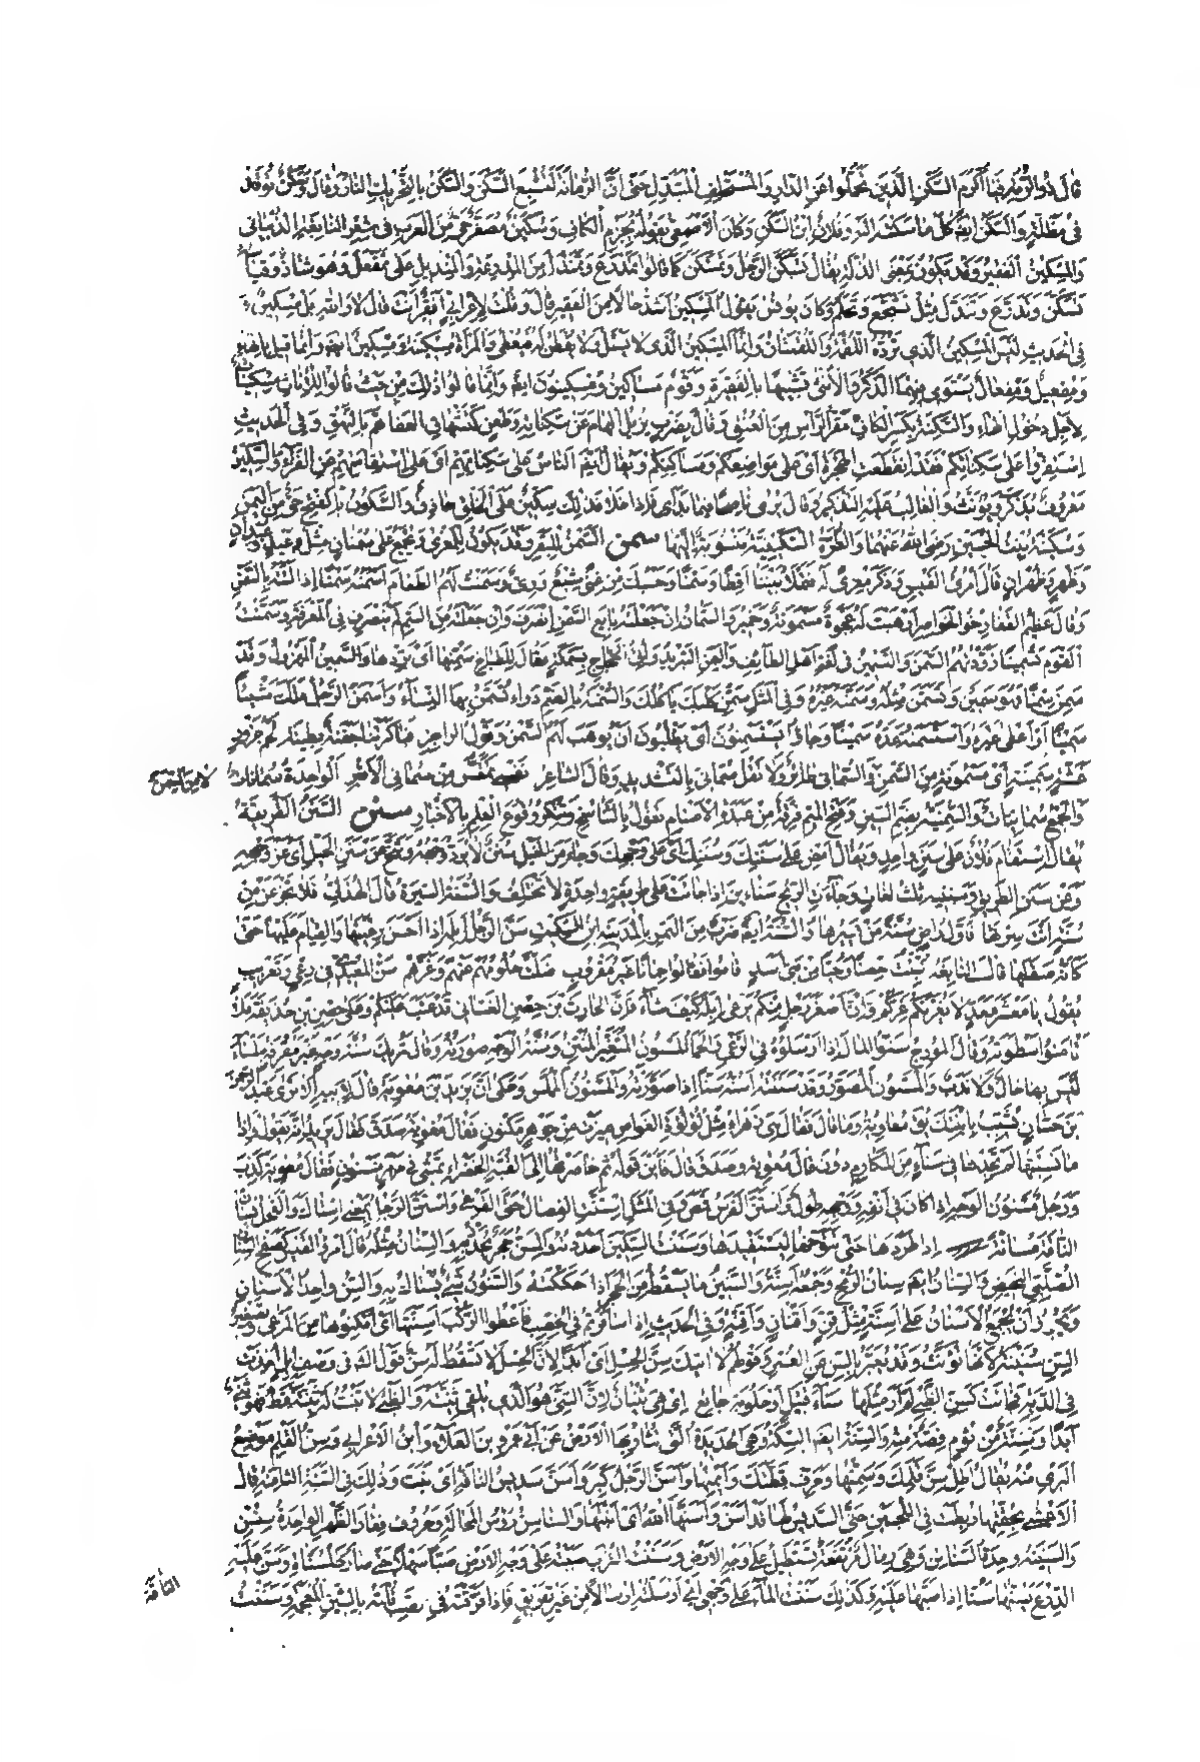 قَالَ ذُو الرُّمَّةِ فَيَا أَكْرَمَ السَّكْنِ الَّذِينَ تَحَمَّلُوا عَنِ الدَّارِ وَالْمُسْتَخْلَفِ الْمُتَبَدَّلِ حَتَّى أَنَّ الرُّمَّانَةَ لَتُشْبِعُ السَّكْنَ وَالسَّكَنُ
وَالسَّكَنُ أَيْضًا كُلُّ مَا سَكَنْتَ إِلَيْهِ وَفُلَانُ ابْنُ السَّكَنِ وَكَانَ الْأَصْمَعِيُّ يَقُولُهُ بِجَزْمِ الْكَافِ وَسُكَيْنٌ مُصَغَّرٌ حَيٌّ مِنَ الْعَرَبِ فِي شِعْرِ النَّابِغَةِ الذُّبْيَانِي
وَالْمِسْكِينُ الْفَقِيرُ وَقَدْ يَكُونُ بِمَعْنَى الذِّلَّةِ يُقَالُ تَسَكَّنَ الرَّجُلُ وَتَمَسْكَنَ كَمَا قَالُوا تَمَدْرَعَ وَتَمَنْدَلَ مِنَ الْمِدْرَعَةِ وَالْمِنْدِيلِ عَلَى تَمَفْعَلَ وَهُوَ شَاذٌّ وَقِيَاسُهُ
تَسَكَّنَ وَتَدَرَّعَ وَتَنَدَّلَ مِثْلُ تَشَجَّعَ وَتَحَلَّمَ وَكَانَ يُونُسُ يَقُولُ الْمِسْكِينُ أَشَدُّ حَالًا مِنَ الْفَقِيرِ قَالَ وَقُلْتُ لِأَعْرَابِيٍّ أَفَقِيرٌ أَنْتَ قَالَ لَا وَاللَّهِ بَلْ مِسْكِينٌ
فِي الْحَدِيثِ لَيْسَ الْمِسْكِينُ الَّذِي تَرُدُّهُ اللُّقْمَةُ وَاللُّقْمَتَانِ وَإِنَّمَا الْمِسْكِينُ الَّذِي لَا يَسْأَلُ وَلَا يُفْطَنُ لَهُ فَيُعْطَى وَالْمَرْأَةُ مِسْكِينَةٌ وَمِسْكِينٌ أَيْضًا وَإِنَّمَا قِيلَ بِالْهَاءِ
وَمِفْعِيلٌ وَمِفْعَالٌ يَسْتَوِي فِيهِمَا الذَّكَرُ وَالْأُنْثَى تَشْبِيهًا بِالْفَقِيرَةِ وَقَوْمٌ مَسَاكِينُ وَمِسْكِينُونَ أَيْضًا وَإِنَّمَا قَالُوا ذَلِكَ مِنْ حَيْثُ قَالُوا لِلْإِنَاثِ مِسْكِينَاتٌ
لِأَجْلِ دُخُولِ الْهَاءِ وَالسَّكِنَةُ بِكَسْرِ الْكَافِ مَقَرُّ الرَّأْسِ مِنَ الْعُنُقِ وَقَالَ بِضَرْبٍ يُزِيلُ الْهَامَ عَنْ سَكِنَاتِهِ وَفِي الْحَدِيثِ
اسْتَقِرُّوا عَلَى سَكِنَاتِكُمْ فَقَدِ انْقَطَعَتِ الْهِجْرَةُ أَيْ عَلَى مَوَاضِعِكُمْ وَمَسَاكِنِكُمْ وَيُقَالُ أَيْضًا النَّاسُ عَلَى سَكِنَاتِهِمْ أَيْ عَلَى اسْتِقَامَتِهِمْ عَنِ الْفَرَّاءِ وَالسِّكِّينُ
مَعْرُوفٌ يُذَكَّرُ وَيُؤَنَّثُ وَالْغَالِبُ عَلَيْهِ التَّذْكِيرُ وَقَالَ يُرَى نَاصِحًا فِيمَا بَدَا وَإِذَا خَلَا فَذَلِكَ سِكِّينٌ عَلَى الْحَلْقِ حَاذِقٌ وَالسَّكُونُ بِالْفَتْحِ حَيٌّ مِنَ الْيَمَنِ
وَسُكَيْنَةُ بِنْتُ الْحُسَيْنِ رَضِيَ اللَّهُ عَنْهُمَا وَالطُّرَّةُ السُّكَيْنِيَّةُ مَنْسُوبَةٌ إِلَيْهَا سمن السَّمْنُ لِلْبَقَرِ وَقَدْ يَكُونُ لِلْمِعْزَى وَيُجْمَعُ عَلَى سُمْنَانٍ مِثْلُ عَبْدٍ وَعُبْدَانٍ
وَظَهْرٍ وَظُهْرَانٍ قَالَ امْرُؤُ الْقَيْسِ وَذَكَرَ مِعْزًى لَهُ فَتَمْلَأُ بَيْتَنَا أَقِطًا وَسَمْنًا وَحَسْبُكَ مِنْ غِنًى شِبَعٌ وَرِيٌّ وَسَمَنْتُ لَهُمُ الطَّعَامَ أَسْمُنُهُ سَمْنًا إِذَا لَتَتَّهُ بِالسَّمْنِ
وَالسَّمَّانُ إِنْ جَعَلْتَهُ بَائِعَ السَّمْنِ انْصَرَفَ وَإِنْ جَعَلْتَهُ مِنَ السَّمِّ لَمْ يَنْصَرِفْ فِي الْمَعْرِفَةِ وَسَمَّنْتُ
الْقَوْمَ تَسْمِينًا زَوَّدْتُهُمُ السَّمْنَ وَالتَّسْمِينُ فِي لُغَةِ أَهْلِ الطَّائِفِ وَالْيَمَنِ التَّبْرِيدُ وَأُتِيَ الْحَجَّاجُ بِسَمَكَةٍ فَقَالَ لِلطَّبَّاخِ سَمِّنْهَا أَيْ بَرِّدْهَا وَالسَّمِينُ خِلَافُ الْمَهْزُولِ وَقَدْ
سَمِنَ سِمَنًا فَهُوَ سَمِينٌ وَتَسَمَّنَ مِثْلُهُ وَسَمَّنَهُ غَيْرُهُ وَفِي الْمَثَلِ سَمِّنْ كَلْبَكَ يَأْكُلْكَ وَالسُّمْنَةُ بِالضَّمِّ دَوَاءٌ تُسَمَّنُ بِهِ النِّسَاءُ وَأَسْمَنَ الرَّجُلُ مَلَكَ شَيْئًا
سَمِينًا أَوْ أَعْطَى غَيْرَهُ وَاسْتَسْمَنَهُ عَدَّهُ سَمِينًا وَجَاءُوا يَسْتَسْمِنُونَ أَيْ يَطْلُبُونَ أَنْ يُوهَبَ لَهُمُ السَّمْنُ وَقَوْلُ الرَّاجِزِ فَبَاكَرَتْنَا جَفْنَةٌ بَطِينَهْ لَحْمَ جَزُورٍ
غَثَّةٍ سَمِينَهْ أَيْ مَسْمُونَةٍ مِنَ السَّمْنِ وَالسُّمَانَى طَائِرٌ وَلَا تَقُلْ سُمَّانَى بِالتَّشْدِيدِ قَالَ الشَّاعِرُ الْوَاحِدَةُ سُمَانَاةٌ
وَالْجَمْعُ سُمَانَيَاتٌ وَالسُّمَنِيَّةُ بِضَمِّ السِّينِ وَفَتْحِ الْمِيمِ فِرْقَةٌ مِنْ عَبَدَةِ الْأَصْنَامِ تَقُولُ بِالتَّنَاسُخِ وَتُنْكِرُ وُقُوعَ الْعِلْمِ بِالْأَخْبَارِ سنن السَّنَنُ الطَّرِيقَةُ
يُقَالُ اسْتَقَامَ فُلَانٌ عَلَى سَنَنٍ وَاحِدٍ وَيُقَالُ امْضِ عَلَى سَنَنِكَ وَسُنَنِكَ أَيْ عَلَى وَجْهِكَ وَجَاءَ مِنَ الْخَيْلِ سَنَنٌ لَا يُرَدُّ وَجْهُهُ وَتَنَحَّ عَنْ سَنَنِ الْخَيْلِ أَيْ عَنْ وَجْهِهِ
وَعَنْ سَنَنِ الطَّرِيقِ وَسُنَنِهِ ثَلَاثُ لُغَاتٍ وَجَاءَتِ الرِّيحُ سَنَائِنَ إِذَا جَاءَتْ عَلَى طَرِيقَةٍ وَاحِدَةٍ لَا تَخْتَلِفُ وَالسُّنَّةُ السِّيرَةُ قَالَ الْهُذَلِيُّ فَلَا تَجْزَعَنْ مِنْ
سُنَّةٍ أَنْتَ سِرْتَهَا فَأَوَّلُ رَاضٍ سُنَّةً مَنْ يَسِيرُهَا وَالسُّنَّةُ أَيْضًا ضَرْبٌ مِنَ التَّمْرِ بِالْمَدِينَةِ ابْنُ السِّكِّيتِ سَنَّ الرَّجُلُ إِبِلَهُ إِذَا أَحْسَنَ رِعْيَتَهَا وَالْقِيَامَ عَلَيْهَا حَتَّى
كَأَنَّهُ صَقَلَهَا قَالَ النَّابِغَةُ نُبِّئْتُ حِصْنًا وَحَيًّا مِنْ بَنِي أَسَدٍ قَامُوا فَقَالُوا حِمَانَا غَيْرُ مَقْرُوبِ ضَلَّتْ حُلُومُهُمْ عَنْهُمْ وَغَرَّهُمْ سَنُّ الْمُعَيْدِيِّ فِي رَعْيٍ وَتَعْزِيبِ
يَقُولُ يَا مَعْشَرَ مَعَدٍّ لَا يَغُرَّنَّكُمْ عِزُّكُمْ وَأَنَّ أَصْغَرَ رَجُلٍ مِنْكُمْ يَرْعَى إِبِلَهُ كَيْفَ شَاءَ فَإِنَّ الْحَارِثَ بْنَ حِصْنٍ الْغَسَّانِيَّ قَدْ عَتَبَ عَلَيْكُمْ وَعَلَى حِصْنِ بْنِ حُذَيْفَةَ فَلَا
تَأْمَنُوا سَطْوَتَهُ وَقَالَ الْمُؤَرِّجُ سَنُّوا الْمَالَ إِذَا أَرْسَلُوهُ فِي الرَّعْيِ وَالْحَمَأُ الْمَسْنُونُ الْمُتَغَيِّرُ الْمُنْتِنُ وَسُنَّةُ الْوَجْهِ صُورَتُهُ وَقَالَ تُرِيكَ سُنَّةَ وَجْهٍ غَيْرَ مُقْرِفَةٍ مَلْسَاءَ
لَيْسَ بِهَا خَالٌ وَلَا نَدَبُ وَالْمَسْنُونُ الْمُصَوَّرُ وَقَدْ سَنَنْتُهُ أَسُنُّهُ سَنًّا إِذَا صَوَّرْتَهُ وَالْمَسْنُونُ الْمُمَلَّسُ وَحُكِيَ أَنَّ يَزِيدَ بْنَ مُعَاوِيَةَ قَالَ لِأَبِيهِ أَلَا تَرَى عَبْدَ الرَّحْمَنِ
بْنَ حَسَّانَ يُشَبِّبُ بِابْنَتِكَ فَقَالَ مُعَاوِيَةُ وَمَا قَالَ فَقَالَ هِيَ زَهْرَاءُ مِثْلُ لُؤْلُؤَةِ الْغَوَّاصِ مِيزَتْ مِنْ جَوْهَرٍ مَكْنُونِ فَقَالَ مُعَاوِيَةُ صَدَقَ فَقَالَ يَزِيدُ إِنَّهُ يَقُولُ وَإِذَا
مَا نَسَبْتَهَا لَمْ تَجِدْهَا فِي سَنَاءٍ مِنَ الْمَكَارِمِ دُونِ قَالَ مُعَاوِيَةُ وَصَدَقَ قَالَ فَأَيْنَ قَوْلُهُ ثُمَّ خَاصَرْتُهَا إِلَى الْقُبَّةِ الْخَضْرَاءِ تَمْشِي فِي مَرْمَرٍ مَسْنُونِ فَقَالَ مُعَاوِيَةُ كَذَبَ
وَرَجُلٌ مَسْنُونُ الْوَجْهِ إِذَا كَانَ فِي أَنْفِهِ وَوَجْهِهِ طُولٌ وَاسْتَنَّ الْفَرَسُ قَمَصَ وَفِي الْمَثَلِ اسْتَنَّتِ الْفِصَالُ حَتَّى الْقَرْعَى
إِذَا طَرَدَهَا حَتَّى تَنَوَّخَهَا لِيَسْفِدَهَا وَسَنَنْتُ السِّكِّينَ أَحْدَدْتُهُ وَالْمِسَنُّ حَجَرٌ يُحَدَّدُ بِهِ وَالسِّنَانُ مِثْلُهُ قَالَ امْرُؤُ الْقَيْسِ كَصَفْحِ السِّنَانِ
الصُّلَّبِيِّ النَّحِيضِ وَالسِّنَانُ أَيْضًا سِنَانُ الرُّمْحِ وَجَمْعُهُ أَسِنَّةٌ وَالسَّنِينُ مَا يَسْقُطُ مِنَ الْحَجَرِ إِذَا حَكَكْتَهُ وَالسَّنُونُ شَيْءٌ يُسْتَاكُ بِهِ وَالسِّنُّ وَاحِدُ الْأَسْنَانِ
وَيَجُوزُ أَنْ تُجْمَعَ الْأَسْنَانُ عَلَى أَسِنَّةٍ مِثْلُ قِنٍّ وَأَقْنَانٍ وَأَقِنَّةٍ وَفِي الْحَدِيثِ إِذَا سَافَرْتُمْ فِي الْخِصْبِ فَأَعْطُوا الرُّكُبَ أَسِنَّتَهَا أَيْ أَمْكِنُوهَا مِنَ الْمَرْعَى وَتَصْغِيرُ
السِّنِّ سُنَيْنَةٌ لِأَنَّهَا تُؤَنَّثُ وَقَدْ يُعَبَّرُ بِالسِّنِّ عَنِ الْعُمُرِ وَقَوْلُهُمْ لَا آتِيكَ سِنَّ الْحِسْلِ أَيْ أَبَدًا لِأَنَّ الْحِسْلَ لَا تَسْقُطُ لَهُ سِنٌّ
فِي الدِّيَةِ فَجَاءَتْ كَسِنِّ الظَّبْيِ لَمْ أَرَ مِثْلَهَا سَنَاءَ قَتِيلٍ أَوْ حَلُوبَةَ جَائِعِ أَيْ هِيَ ثُنْيَانٌ لِأَنَّ الثَّنِيَّ هُوَ الَّذِي يُلْقِي ثَنِيَّتَهُ وَالظَّبْيُ لَا تَنْبُتُ لَهُ ثَنِيَّةٌ قَطُّ فَهُوَ ثَنِيٌّ
أَبَدًا وَسِنَّةٌ مِنْ ثُومٍ فِصَّةٌ مِنْهُ وَالسِّنَّةُ أَيْضًا السِّكَّةُ وَهِيَ الْحَدِيدَةُ الَّتِي تُثَارُ بِهَا الْأَرْضُ عَنْ أَبِي عَمْرِو بْنِ الْعَلَاءِ وَابْنِ الْأَعْرَابِيِّ وَسِنُّ الْقَلَمِ مَوْضِعُ
الْبَرْيِ مِنْهُ يُقَالُ أَطِلْ سِنَّ قَلَمِكَ وَسَمِّنْهَا وَحَرِّفْ قَطَّتَكَ وَأَيْمِنْهَا وَأَسَنَّ الرَّجُلُ كَبِرَ وَأَسَنَّ سَدِيسُ النَّاقَةِ أَيْ نَبَتَ وَذَلِكَ فِي السَّنَةِ الثَّامِنَةِ قَالَ
الْأَعْشَى بِحِقَّتِهَا رُبِطَتْ فِي اللَّجِينِ حَتَّى السَّدِيسُ لَهَا قَدْ أَسَنّ وَأَسَنَّهَا اللَّهُ أَيْ أَنْبَتَهَا وَالسَّنَاسِنُ رُءُوسُ الْمَحَالَةِ وَحُرُوفُ فَقَارِ الظَّهْرِ الْوَاحِدَةُ سِنْسِنٌ
وَالسَّنِينَةُ وَاحِدَةُ السَّنَائِنِ وَهِيَ رِمَالٌ مُرْتَفِعَةٌ تَسْتَطِيلُ عَلَى وَجْهِ الْأَرْضِ وَسَنَنْتُ التُّرَابَ صَبَبْتُهُ عَلَى وَجْهِ الْأَرْضِ صَبًّا سَهْلًا حَتَّى صَارَ كَالْمُسَنَّاةِ وَسَنَّ عَلَيْهِ
الدِّرْعَ يَسُنُّهَا سَنًّا إِذَا صَبَّهَا عَلَيْهِ وَكَذَلِكَ سَنَنْتُ الْمَاءَ عَلَى وَجْهِي أَيْ أَرْسَلْتُهُ إِرْسَالًا مِنْ غَيْرِ تَفْرِيقٍ فَإِذَا فَرَّقْتَهُ فِي الصَّبِّ قُلْتَهُ بِالشِّينِ الْمُعْجَمَةِ وَسَنَنْتُ
النَّاقَةَ